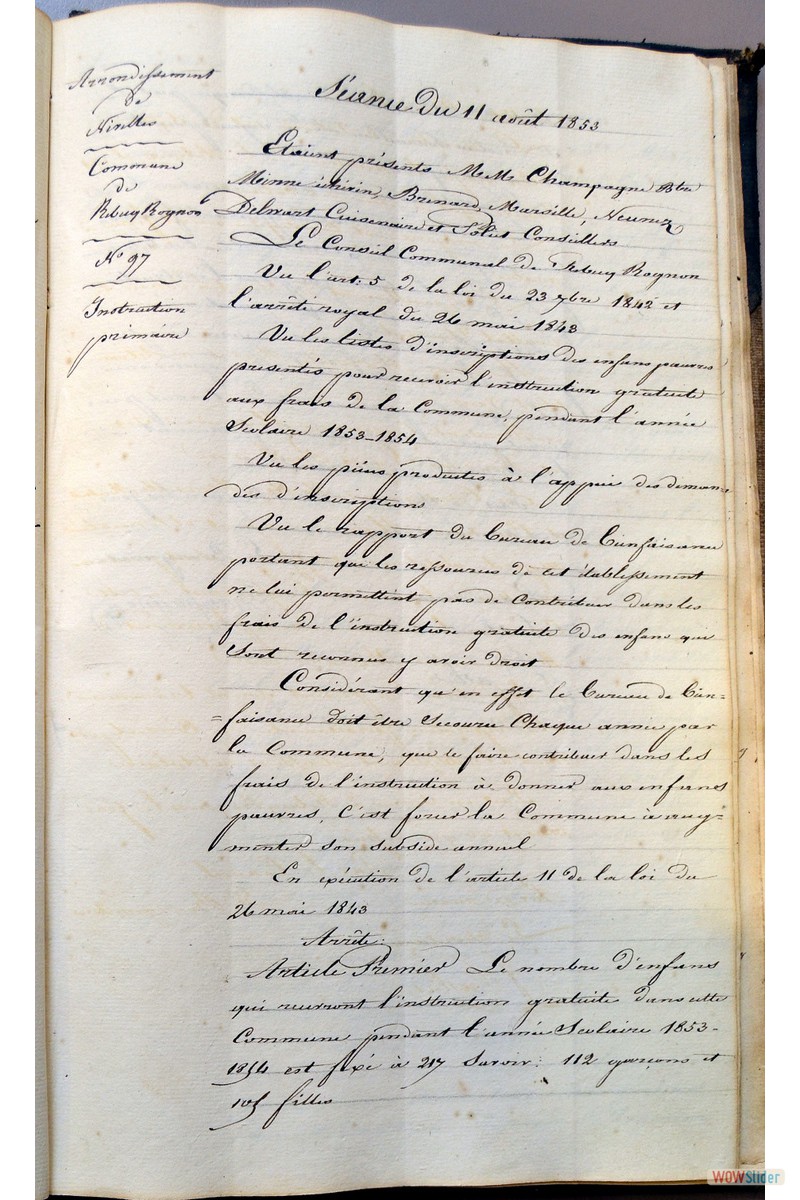 Arrondissement
de
Nivelles
Commune
de
Rebecq Rognon
N° 97
Instruction
primaire
Séance du 11 août 1853
Etaient présents M.M. Champagne Btre
Minne échevin, Brenard, Marsille, Neunez
Delwart Cuisenaire et Conseillers
Le Conseil Communal de Rebecq Rognon
Vu l'art: 5 de la loi du 23 7bre 1842 et
l'arrêté royal du 26 mai 1843
Vu les listes d'inscriptions des enfans pauvres
présentés pour recevoir l'instruction gratuite
aux frais de la Commune, pendant l'année
Scolaire 1853-1854
Vu les pièces produites à l'appui des deman
des d'inscriptions
Vu le rapport du bureau de bienfaisance
portant que les ressources de cet établissement
ne lui permettent pas de contribuer dans les
frais de l'instruction gratuite des enfans qui
sont reconnus y avoir droit
Considérant qu'en effet le bureau de bien=
=faisance doit être secouru chaque année par
la Commune, que le faire contribuer dans les
frais de l'instruction à donner aux enfans
pauvres, c'est forcer la Commune à aug=
menter son subside annuel
En exécution de l'article 11 de la loi du
26 mai 1843
Arrête:
Article Premier Le nombre d'enfans
qui recevront l'instruction gratuite dans cette
Commune pendant l'année Scolaire 1853-
1854 est fixé à 217 savoir: 112 garçons et
105 filles
WOWSlider